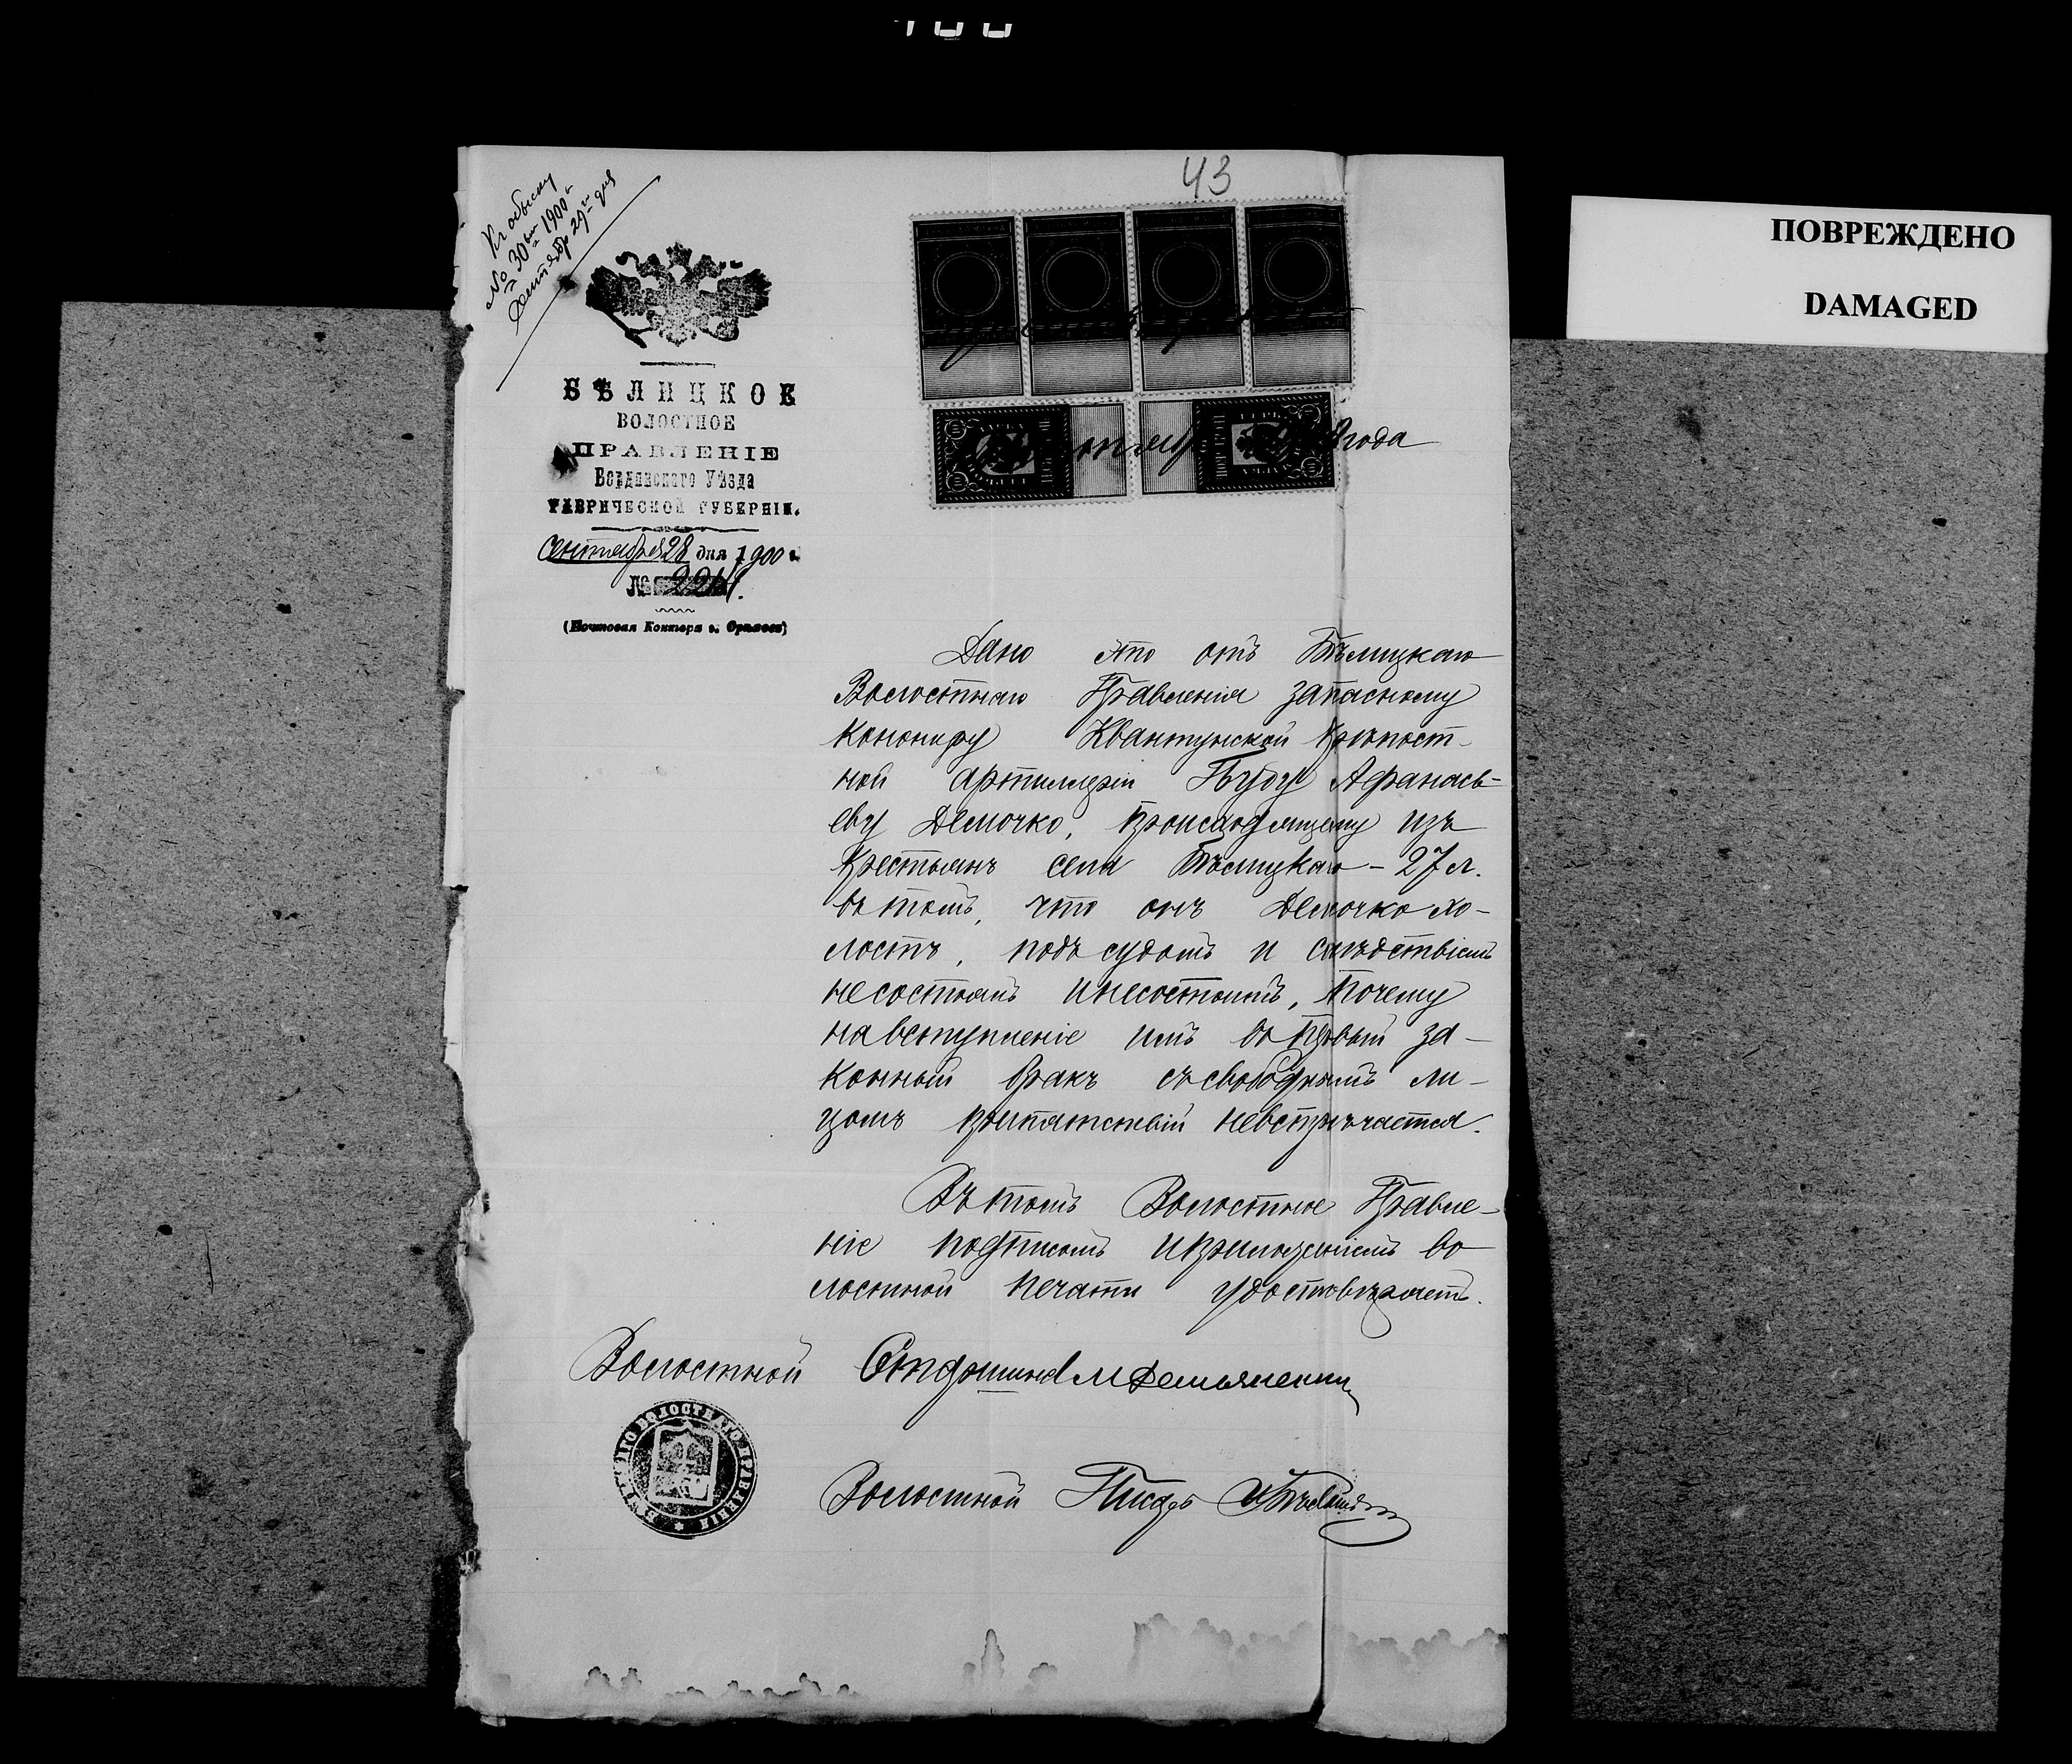 43
Къ обыску
№ 30ый 1900 г
Сентябр 29го дня
БѢЛИЦКОЕ
ВОЛОСТНОЕ
ПРАВЛЕНІЕ
Бердянского Уѣзда
ТАВРИЧЕСКОЙ ГУБЕРНІИ.
Сентября 28 дня 1900 г.
№
(Почтовая Контора с.
года
Дано это отъ Бѣлицкаго
Волостнаго Правленія запасному
канониру Квантунской крѣпост-
ной артиллеріи Афанась-
еву Демочко, происходящему изъ
крестьянъ села Бѣлицкаго - 27 л.
въ томъ, что онъ Демочко хо-
лостъ, подъ судомъ и слѣдствіемъ
несостоялъ и несостоитъ, почему
на вступленіе имъ въ первый за-
конный бракъ съ свободнымъ ли-
цомъ препятствій невстрѣчается.
Въ томъ Волостное Правле-
ніе подписомъ и приложеніемъ во
лостной печати удостовѣряетъ.
Волостной Старшина М Демьяненки
Волостной Писарь
ВОЛОСТНАГО ПРАВЛЕНІЯ
ПОВРЕЖДЕНО
DAMAGED